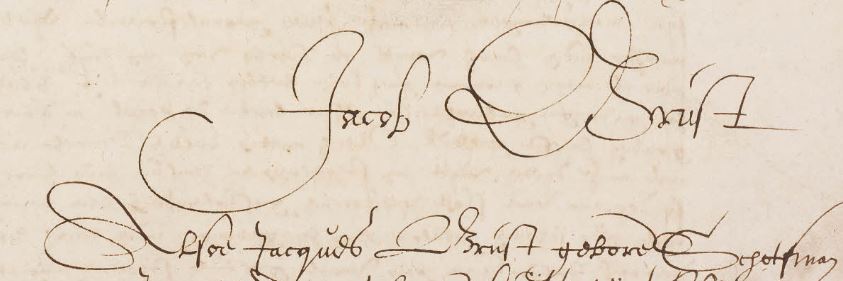 Jacob Brust
Alsoe Jacques Brust geboren Schotsman